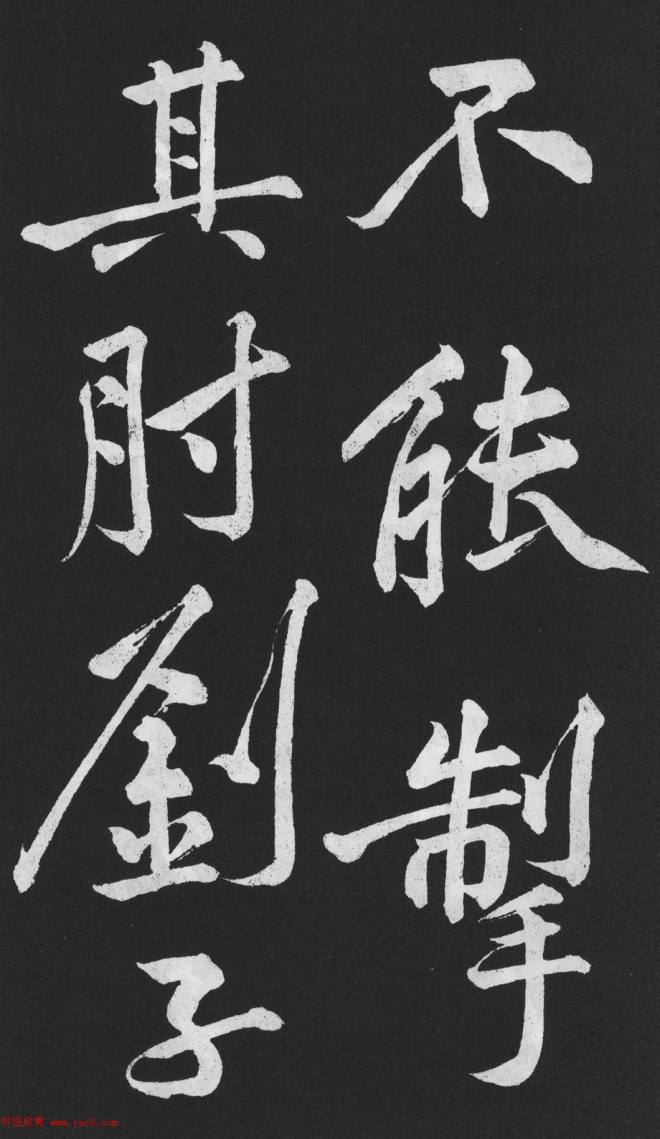 不能掣
其肘劉子
书法欣赏 www.yac8.com